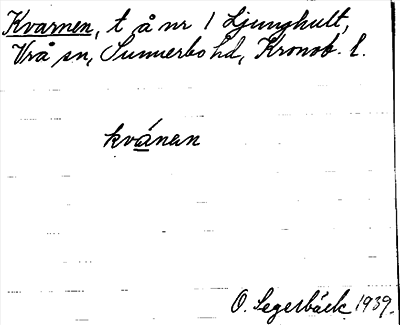 Kvarnen, t å nr 1 Ljunghult,
Vrå sn, Sunnerbo hd, Kronob. l.
kvánan
O. Segerbäck 1939.